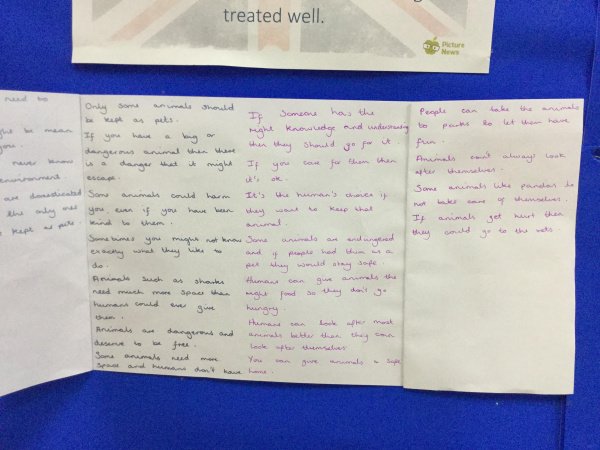 treated well.
Picture
News
need to
be mean
you.
never know
environment.
are domesticated
the only ones
kept as pets.
Only some animals should
be kept as pets.
If you have a big or
dangerous animal then there
is a danger that it might
escape.
Some animals could harm
you, even if you have been
kind to them.
Sometimes you might not know
exactly what they like to
do.
Animals such as sharks
need much more space than
humans could ever give
them.
Animals are dangerous and
deserve to be free.
Some animals need more
space and humans don't have
If someone has the
right knowledge and understanding
then they should go for it.
If you care for them then
it's ok.
It's the human's choice if
they want to keep that
animal.
Some animals are endangered
and if people had them as a
pet they would stay safe.
Humans can give animals the
right food so they don't go
hungry.
Humans can look after most
animals better than they can
look after themselves
You can give animals a safe
home.
People can take the animals
to parks to let them have
fun.
Animals can't always look
after themselves.
Some animals like pandas do
not take care of themselves.
If animals get hurt then
they could go to the vets.